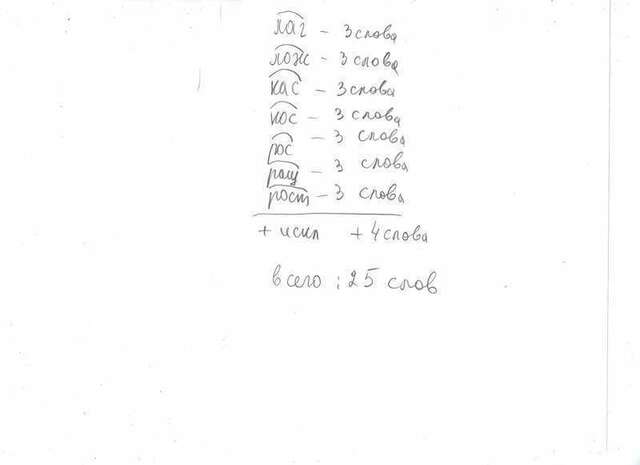 лаг - 3 слова
лож - 3 слова
кас - 3 слова
кос - 3 слова
рос - 3 слова
ращ - 3 слова
рост - 3 слова
+ искл + 4 слова
всего : 25 слов